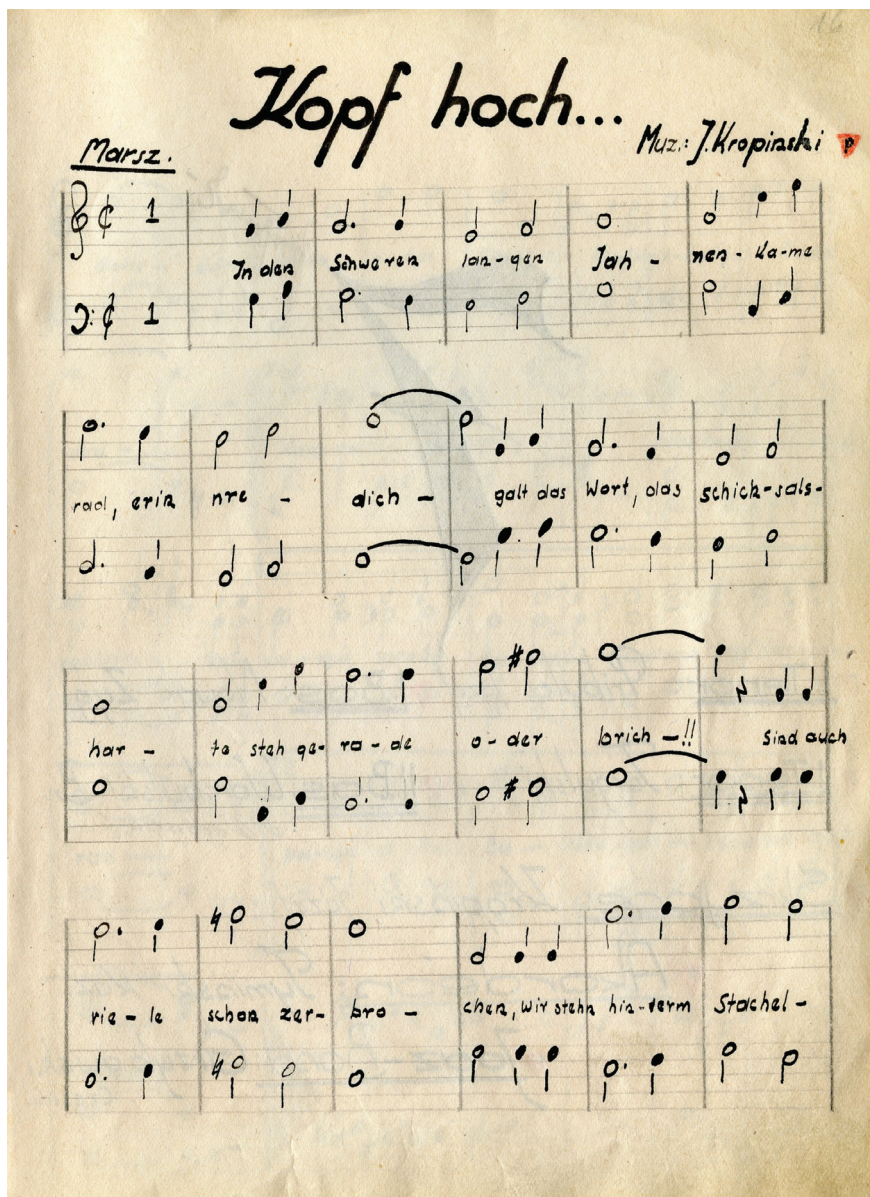 16
Kopf hoch...
Marsz.
Muz.: J. Kropiński P
1
In den Schweren lan-gen Jah- nen-Ka-me
1
rad, erin nre - dich - galt das Wort, das schick-sals-
har - te steh ge-ra-de o-der brich-!! Sind auch
vie-le schon zer-bro- chen, wir stehn hin-term Stachel-